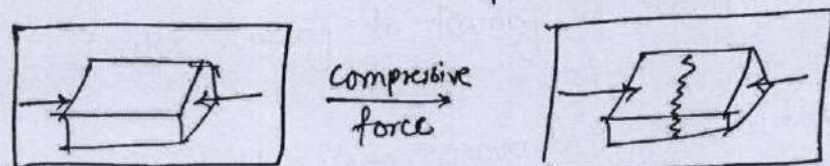 compressive
force